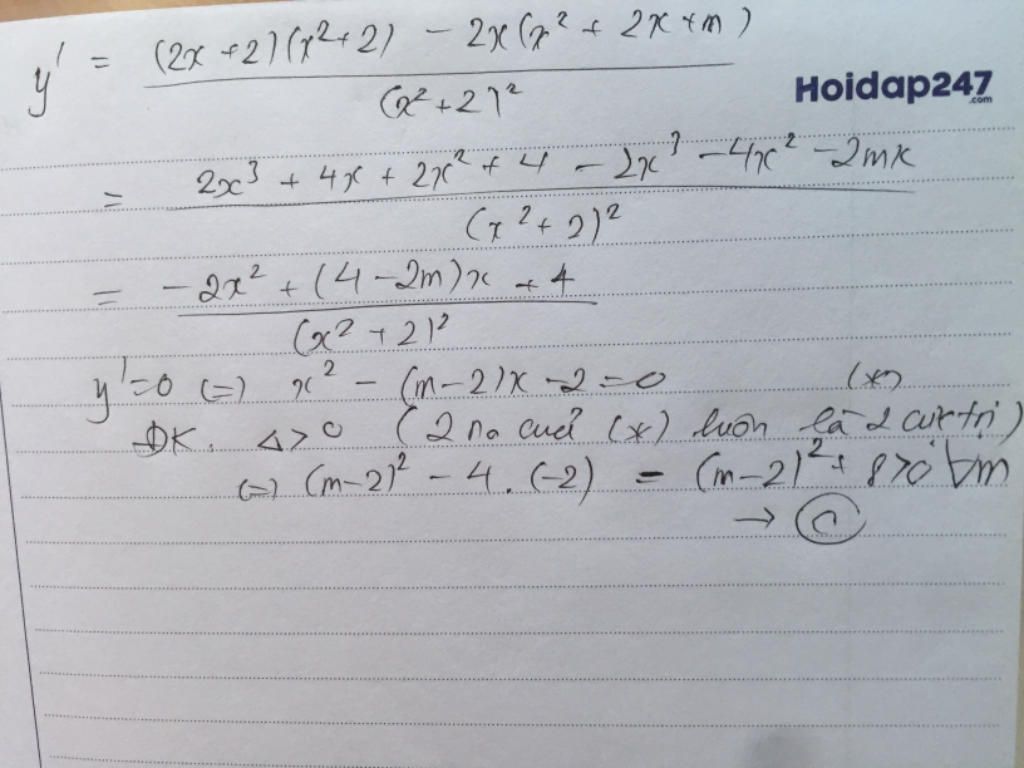 y' = \frac{(2x+2)(x^2+2) - 2x(x^2+2x+m)}{(x^2+2)^2}
Hoidap247
.com
= \frac{2x^3 + 4x + 2x^2 + 4 - 2x^3 - 4x^2 - 2mx}{(x^2+2)^2}
= \frac{-2x^2 + (4-2m)x + 4}{(x^2+2)^2}
y'=0 (=) x^2 - (m-2)x - 2 = 0 (*)
ĐK: Δ>0 (2 no của (*) luôn là 2 cực trị)
(=) (m-2)^2 - 4.(-2) = (m-2)^2 + 8 > 0 ∀m
→